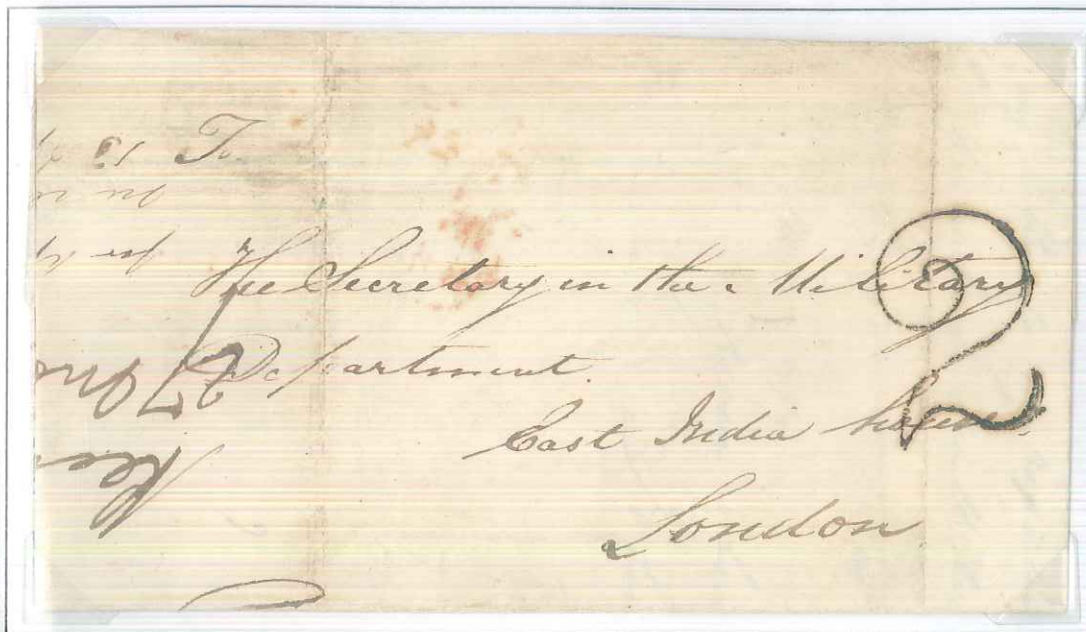 To
The Secretary in the Military
Department.
East India House
London
2